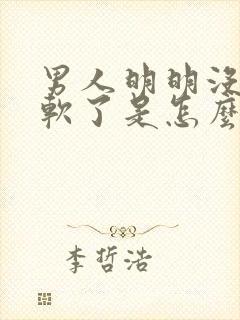 男人明明没
軟了是怎麼
李哲浩